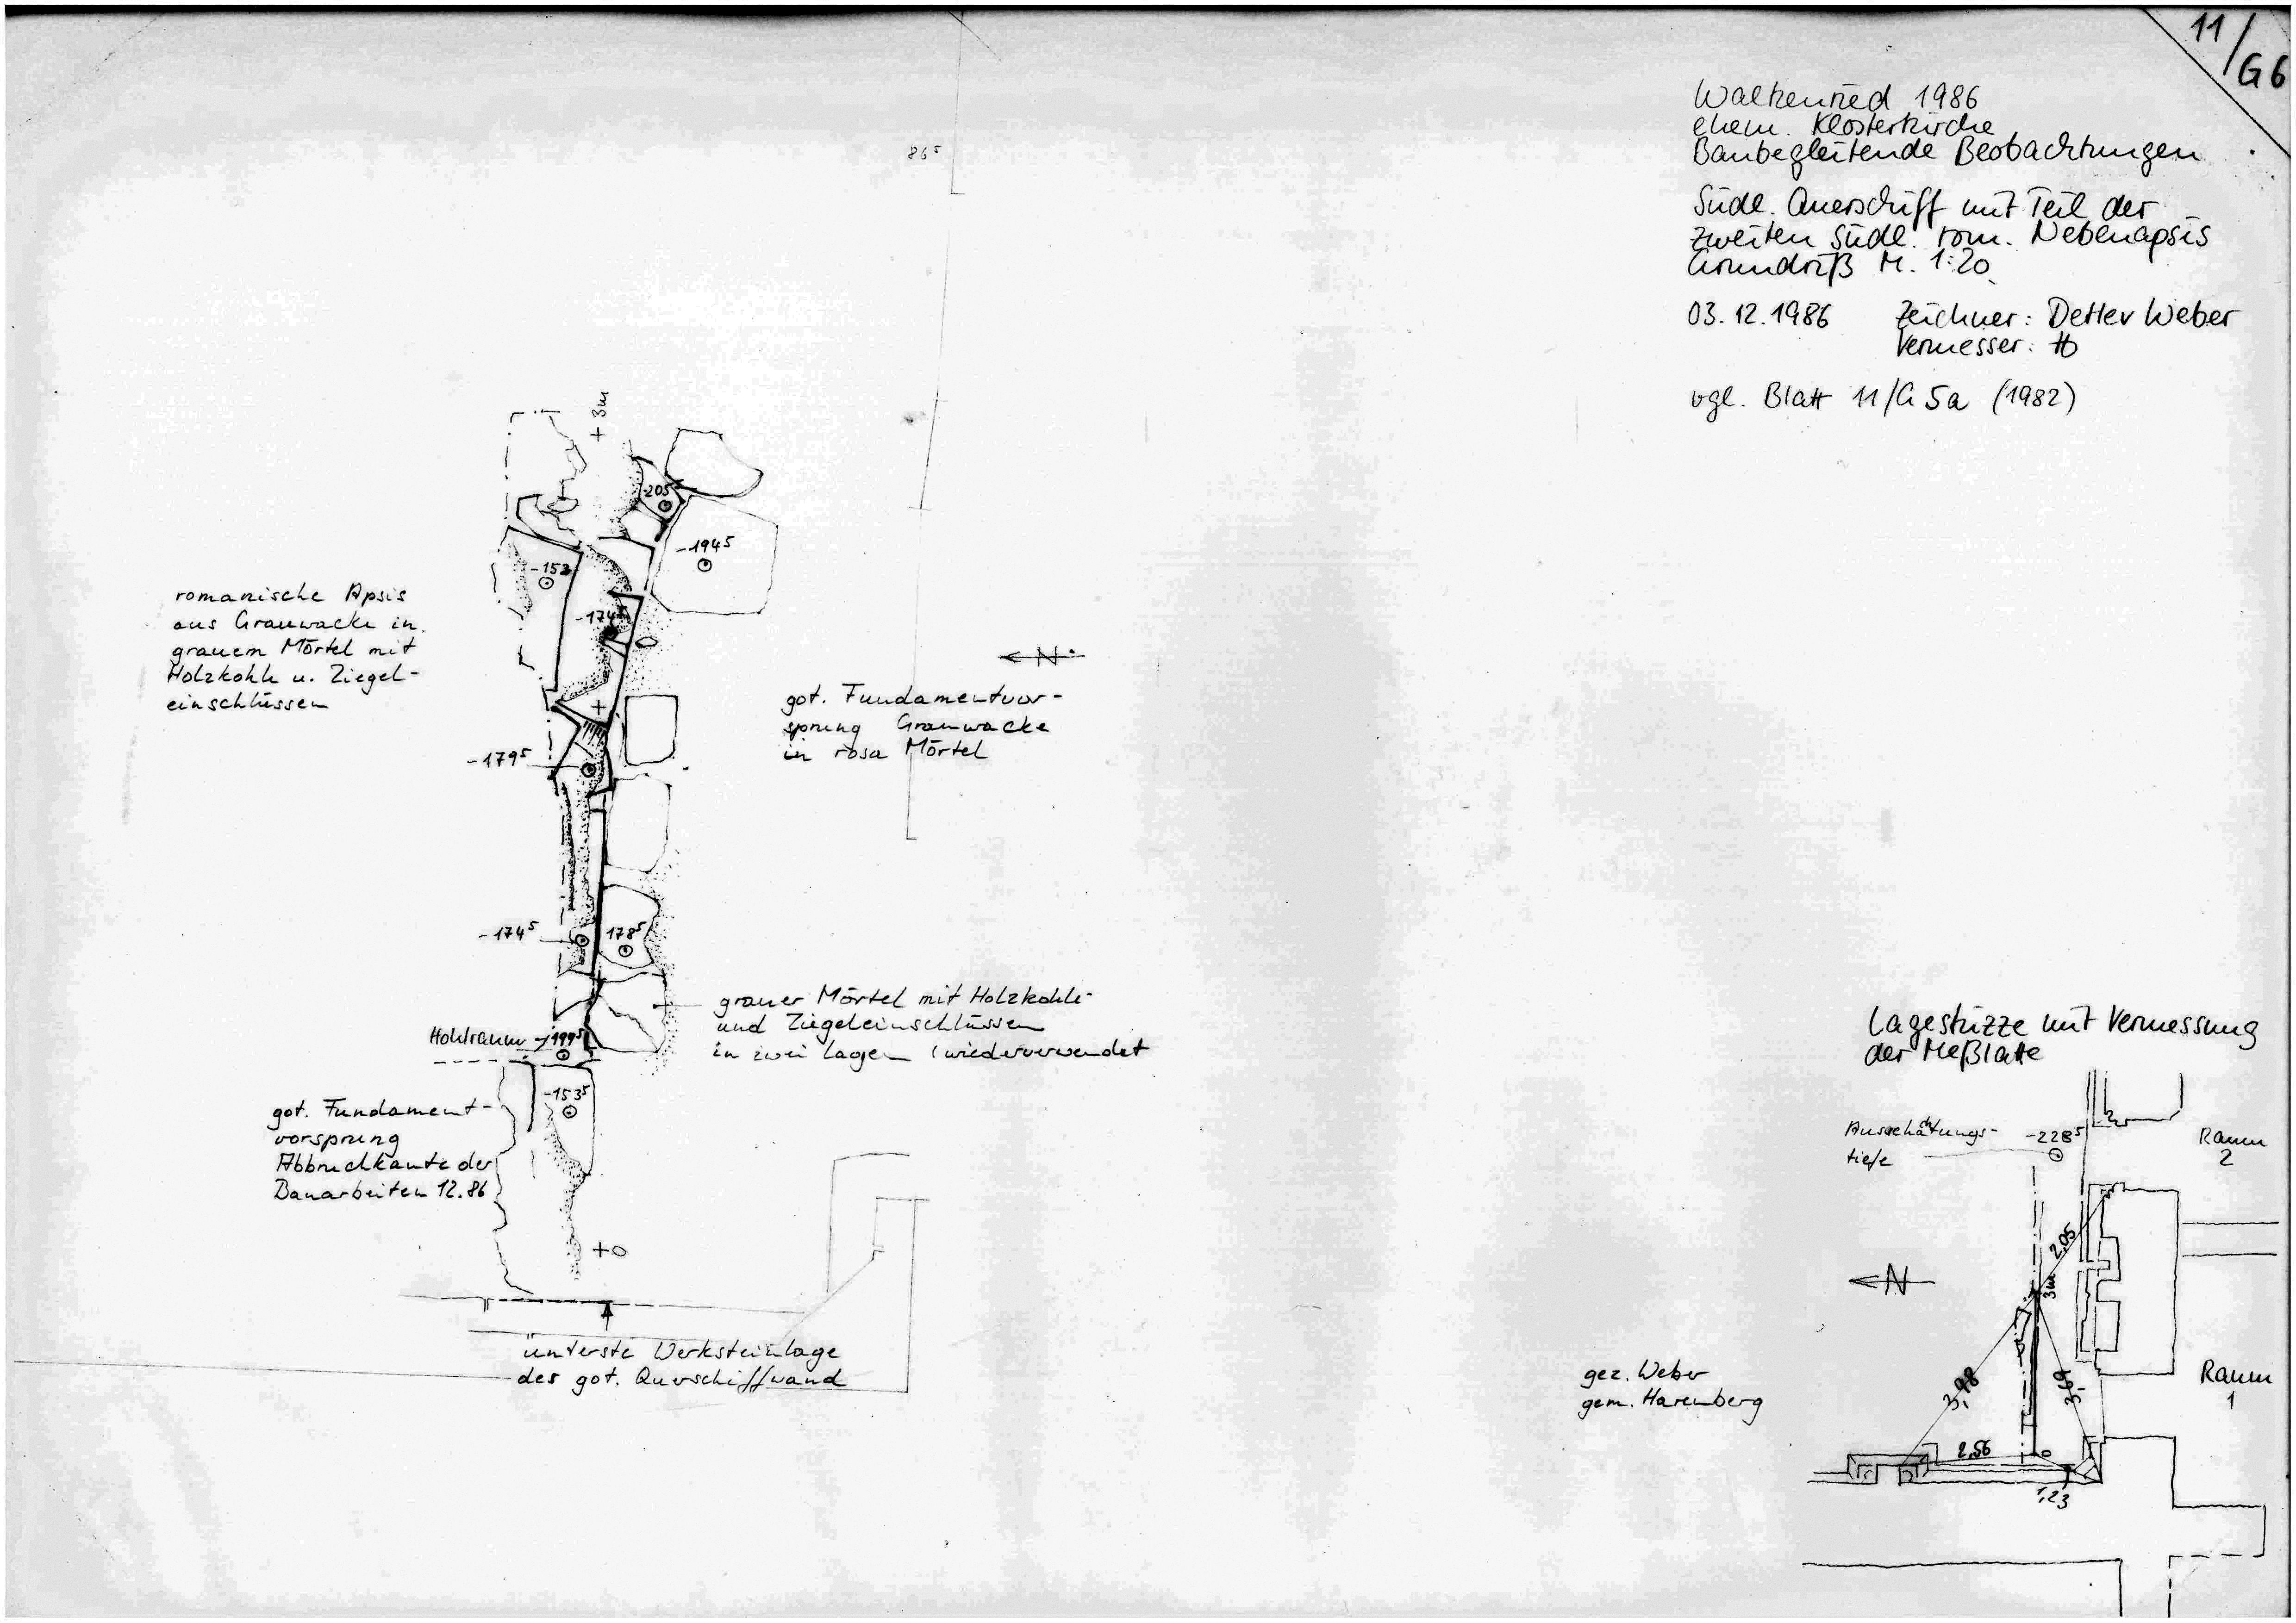 11/G6
Walkenried 1986
ehem. Klosterkirche
Baubegleitende Beobachtungen
Südl. Querschiff mit Teil der
zweiten südl. rom. Nebenapsis
Grundriß M. 1:20
03.12.1986 Zeichner: Detlev Weber
Vermesser:
vgl. Blatt 11/G 5a (1982)
86⁵
+ 3m
-205
-194⁵
-152
-174⁵
romanische Apsis
aus Grauwacke in
grauem Mörtel mit
Holzkohle u. Ziegel-
einschlüssen
N
got. Fundamentvor-
sprung Grauwacke
in rosa Mörtel
-179⁵
-174⁵
178⁵
grauer Mörtel mit Holzkohle-
und Ziegeleinschlüssen
in zwei Lagen (wiederverwendet
Hohlraum -199⁵
-153⁵
got. Fundament-
vorsprung
Abbruchkante der
Bauarbeiten 12.86
+0
unterste Werksteinlage
der got. Querschiffwand
Lageskizze mit Vermessung
der Meßlatte
Ausschachtungs-
tiefe
-228⁵
Raum
2
2,05
N
3m
3,98
3,69
Raum
1
gez. Weber
gem. Harenberg
2,56
0
1,23